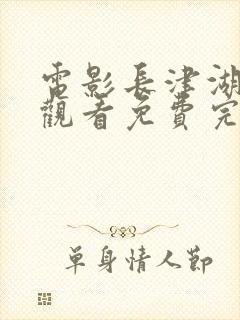 電影長津湖
觀看免費完
單身情人節